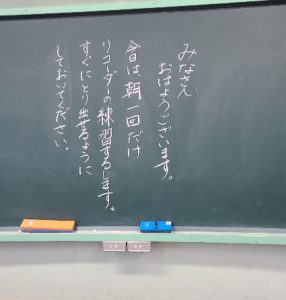 みなさん
おはようございます。
今日は、朝一回だけ
リコーダーの練習をします。
すぐにとり出せるように
しておいてください。